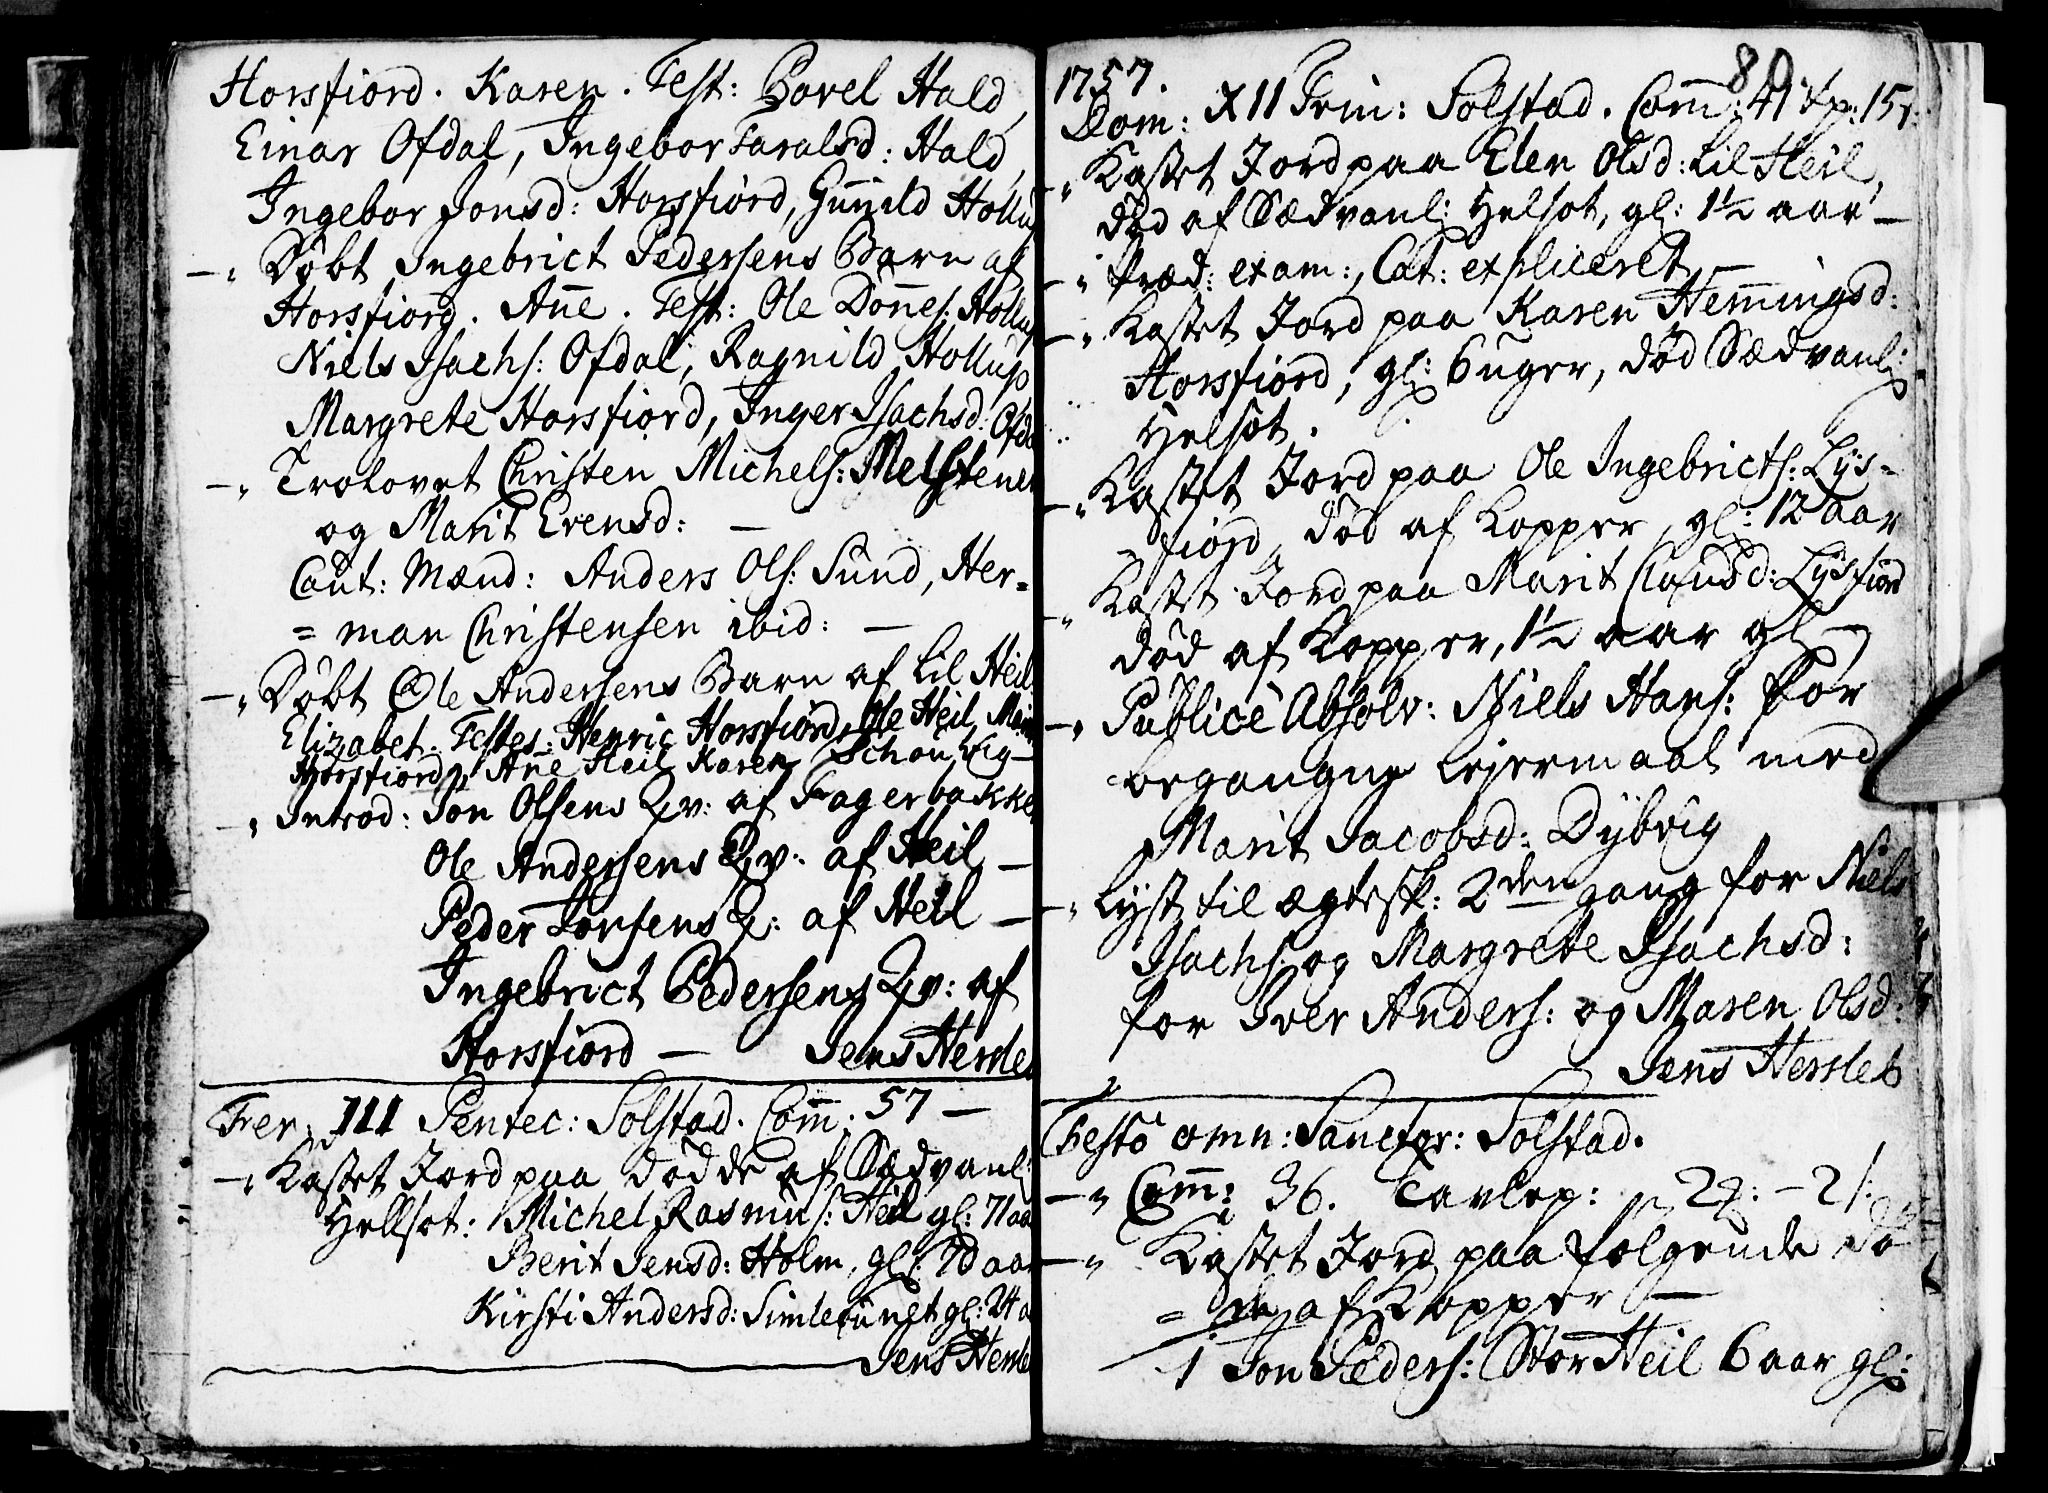 Horsfiord. Karen. Test: Povel Hald,
Einar Ofdal, Ingebor Taralsd: Hald,
Ingebor Jonsd: Horsfiord, Gunild Hollup
—„ Døbt Ingebrict Pedersens Barn af
Horsfiord. Ane. Test: Ole Dones: Hollup
Niels Isachs: Ofdal, Ragnild Hollup
Margrete Horsfiord, Inger Isachsd: Ofda
—„ Trolovet Christen Michels: Melstenen
og Marit Evensd: —
Caut: Mænd: Anders Ols: Sund, Her=
=man Christensen ibid: —
—„ Døbt Ole Andersens Barn af Lil Heil
Elizabet. Testes: Henric Horsfiord, Ole Heil,
Horsfiord, Ane Heil, Karen
—„ Introd: Jon Olsens Qv: af Fagerbakke
Ole Andersens Qv: af Heil —
Peder Torsens Q: af Heil —
Ingebrict Pedersens Qv: af
Horsfiord — Jens Hersleb
Fer: III Pentec: Solstad. Comm: 57 —
—„ Kastet Jord paa dødde af Sædvanl:
Hellsot: Michel Rasmus: Heil gl: 71 aa
Berit Jensd: Holm, gl: 70 aar
Kirsti Andersd: Simlesunet gl: 24 a
Jens Hersle
80.
1757.
Dom: XII Trin: Solstad. Comm: 41 Xp: 15
—„ Kastet Jord paa Elen Olsd: Lil Heil,
død af Sædvanl: Helsot, gl: 1½ aar —
—„ Præd: exam:, Cat: expliceret —
—„ Kastet Jord paa Karen Hemmingsd:
Horsfiord, gl: 6 uger, død Sædvanl:
Helsot.
—„ Kastet Jord paa Ole Ingebricts: Lys=
fiord, død af Kopper, gl: 12 aar
—„ Kastet Jord paa Marit Clausd: Lysfiord
død af Kopper, 1½ aar gl —
—„ Publice Absolv: Niels Hans: for
begangne Lejermaal med
Marit Jacobsd: Dybvig
—„ Lyst til ægtesk: 2den gang for Niels
Isachs: og Margrete Isachsd:
for Iver Anders: og Maren Olsd:
Jens Hersleb
Festo omn: Sanctor: Solstad.
—„ Comm: 36. Tavlep: 2
—„ Kastet Jord paa følgende dø
=de af Kopper —
1 Jon Peders: Stor Heil 6 aar gl: